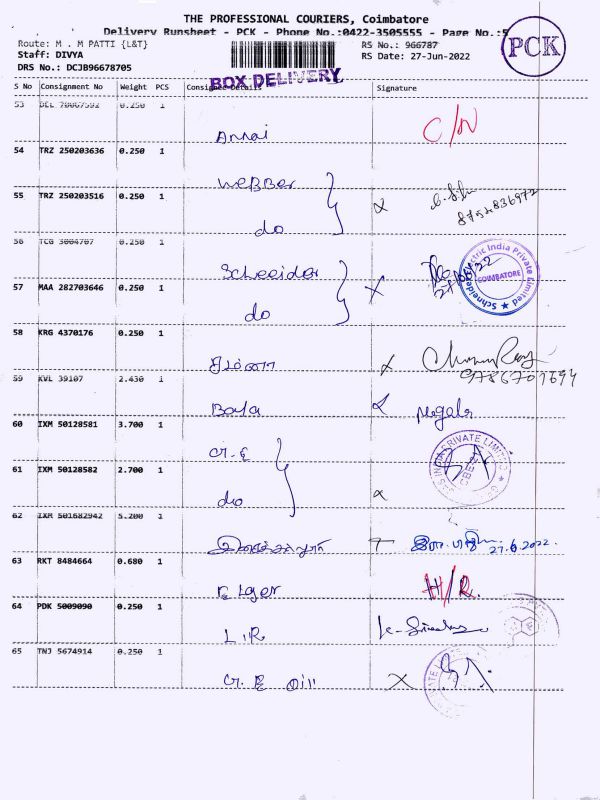 THE PROFESSIONAL COURIERS, Coimbatore
Delivery Runsheet - PCK - Phone No.:0422-3505555 - Page No.:5
Route: M . M PATTI {L&T} RS No.: 966787
Staff: DIVYA RS Date: 27-Jun-2022
DRS No.: DCJB96678705
PCK
BOX DELIVERY
S No Consignment No Weight PCS Consignee Details Signature
53 DEL 0.250 1
Annai C/N
54 TRZ 250203636 0.250 1
WEBBer
55 TRZ 250203516 0.250 1
8752836972
do
56 TCG 3004707 0.250 1
Schneider
Schneider Electric India Private Limited
COIMBATORE
57 MAA 282703646 0.250 1
do
58 KRG 4370176 0.250 1
9786701694
59 KVL 39107 2.430 1
60 IXM 50128581 3.700 1
Cr. E
INDIA PRIVATE LIMITED
61 IXM 50128582 2.700 1
do
62 IXM 501682942 5.200 1
27.6.2022.
63 RKT 8484664 0.680 1
Elger H/R.
64 PDK 5009090 0.250 1
L.R
65 TNJ 5674914 0.250 1
Cr. E